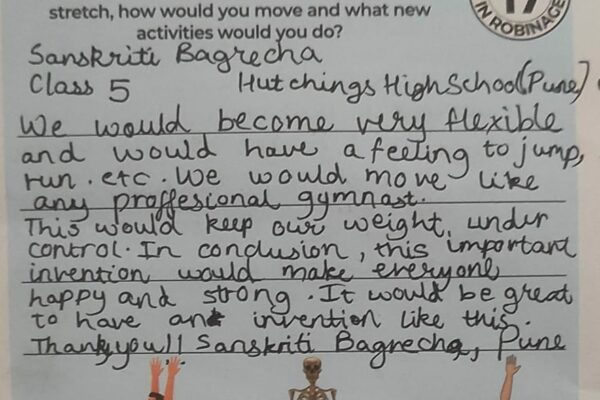 stretch, how would you move and what new
activities would you do?
17
IN ROBINAGE
Sanskriti Bagrecha
Class 5 Hutchings High School (Pune)
We would become very flexible
and would have a feeling to jump,
run . etc . We would move like
any proffesional gymnast.
This would keep our weight, under
control. In conclusion, this important
invention would make everyone
happy and strong . It would be great
to have an invention like this.
Thankyou!! Sanskriti Bagrecha, Pune